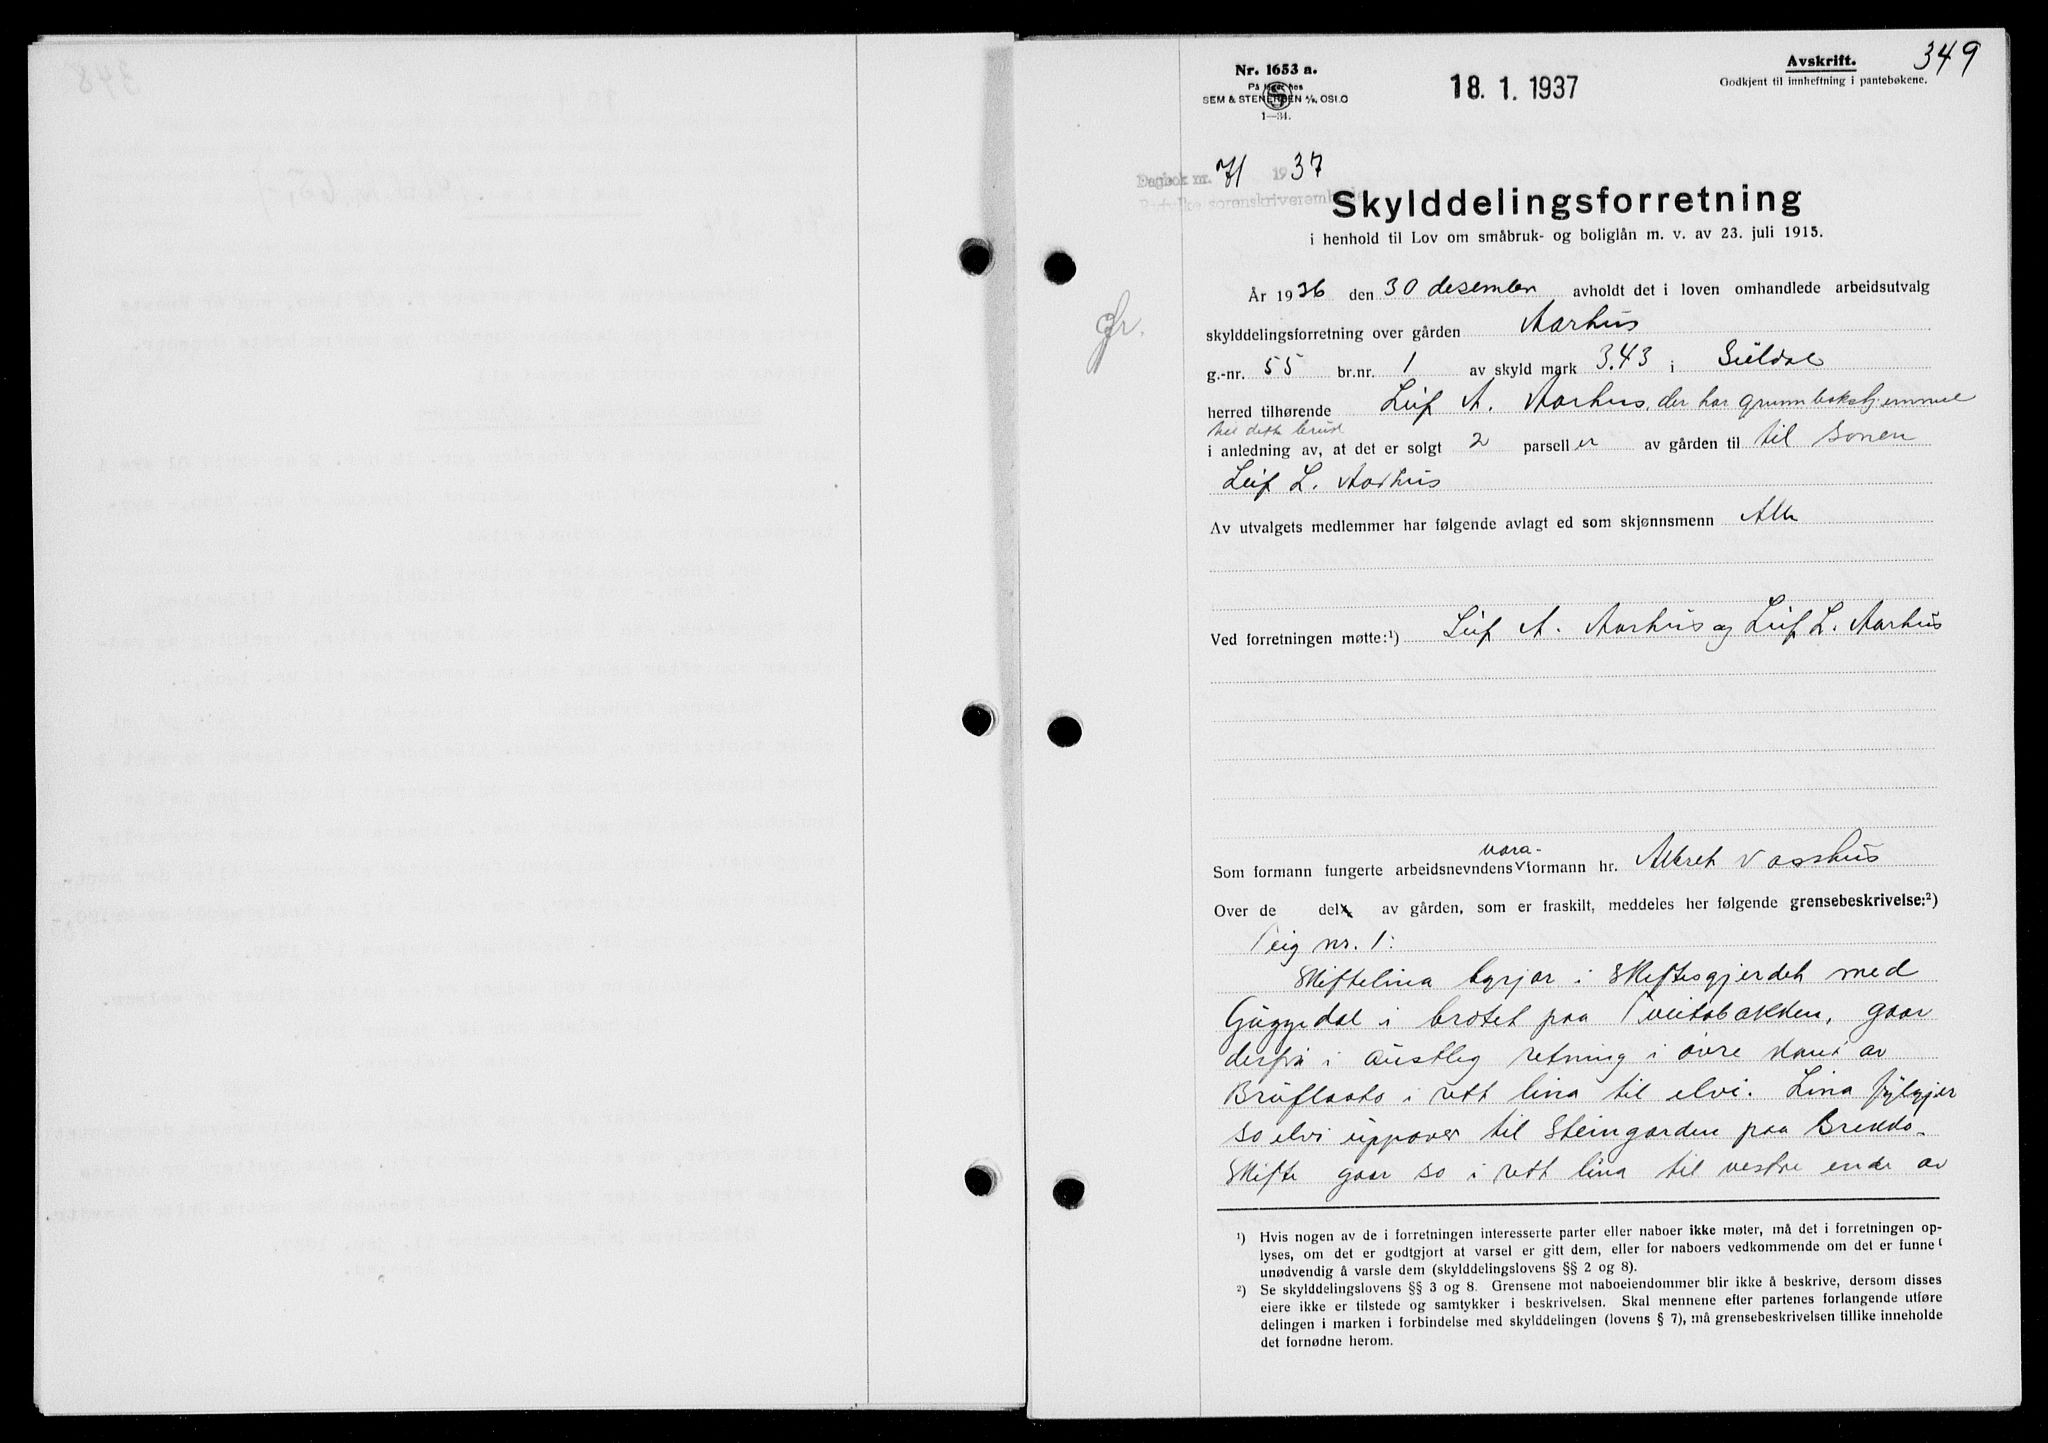 349
Avskrift.
Godkjent til innheftning i pantebøkene.
Nr. 1653 a.
På lager hos
SEM & STENERSEN A/S, OSLO
1—34.
18. 1. 1937
Dagbok nr. 71 1937
sorenskriverembede
Skylddelingsforretning
i henhold til Lov om småbruk- og boliglån m. v. av 23. juli 1915.
gr.
År 1936 den 30 desember avholdt det i loven omhandlede arbeidsutvalg
skylddelingsforretning over gården Aarhus
g.-nr. 55 br.nr. 1 av skyld mark 3.43 i Suldal
herred tilhørende Leif A. Aarhus, der har grunnbokshjemmel
til dette bruk
i anledning av, at det er solgt 2 parseller av gården til til sonen
Leif L. Aarhus
Av utvalgets medlemmer har følgende avlagt ed som skjønnsmenn Alle
Ved forretningen møtte:¹) Leif A. Aarhus og Leif L. Aarhus
vara-
Som formann fungerte arbeidsnevndens formann hr. Albret Vasshus
Over de del av gården, som er fraskilt, meddeles her følgende grensebeskrivelse:²)
Teig nr. 1:
Skiftelina byrjar i Skiftesgjerdet med
Guggedal i brotet paa Tveitabakken, gaar
derfrå i austleg retning i øvre kant av
Bruflaato i rett lina til elvi. Lina fylgjer
so elvi uppover til Steingarden paa Brekko-
skifte gaar so i rett lina til vestre ende av
¹) Hvis nogen av de i forretningen interesserte parter eller naboer ikke møter, må det i forretningen op-
lyses, om det er godtgjort at varsel er gitt dem, eller for naboers vedkommende om det er funnet
unødvendig å varsle dem (skylddelingslovens §§ 2 og 8).
²) Se skylddelingslovens §§ 3 og 8. Grensene mot naboeiendommer blir ikke å beskrive, dersom disses
eiere ikke er tilstede og samtykker i beskrivelsen. Skal mennene efter partenes forlangende utføre
delingen i marken i forbindelse med skylddelingen (lovens § 7), må grensebeskrivelsen tillike inneholde
det fornødne herom.